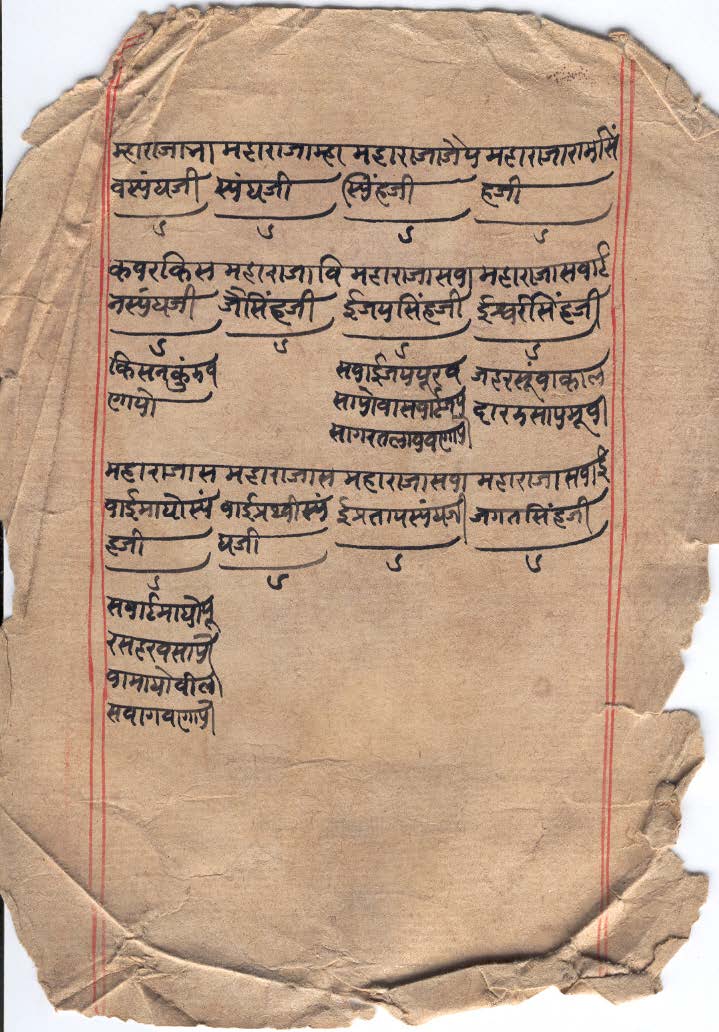 म्हाराजाभा महाराजाम्हा महाराजाजैय महाराजारामसिं
वस्यंघजी स्यंघजी स्यिंहजी हजी
कवरकिस महाराजावि महाराजासवा महाराजासवाई
नस्यंघजी जैसिंहजी ईजयसिंहजी ईश्वरीसिंहजी
किसनकुंडव सवाईजयपूरव जहरसूंवाकाल
णायो सायोवासवाईजय
सागरतलावुवणायो
महाराजास महाराजास महाराजासवा महाराजासवाई
वाईमाधोस्यं वाईप्रथ्वीस्यं ईप्रतापस्यंघजी जगतसिंहजी
हजी घजी
सवाईमाधोपू
रसहरवसायो
वामाधोवीला
सवागवणायो